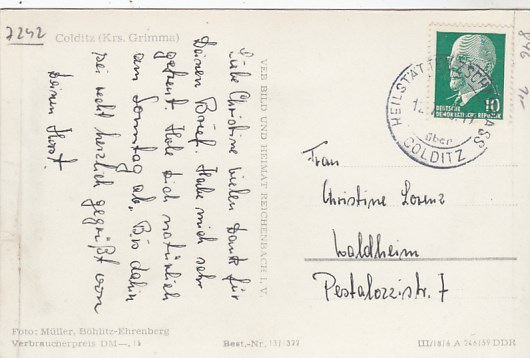 7242
Colditz (Krs. Grimma)
Liebe Christine vielen Dank für
Deinen Brief. Habe mich sehr
gefreut. Hole dich natürlich
am Sonntag ab. Bis dahin
sei recht herzlich gegrüßt von
Deinem Horst.
VEB BILD UND HEIMAT REICHENBACH I. V.
HEILSTÄTTE
über
COLDITZ
DEUTSCHE
DEMOKRATISCHE REPUBLIK
10
Frau
Christine Lorenz
Waldheim
Pestalozzistr. 7
Foto: Müller, Böhlitz-Ehrenberg
Verbraucherpreis DM —,
Best.-Nr.
III/18/6 A 746/59 DDR